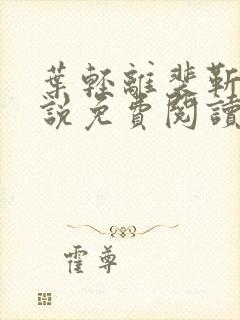 葉輕離裴靳
說免費閱讀
霍尊